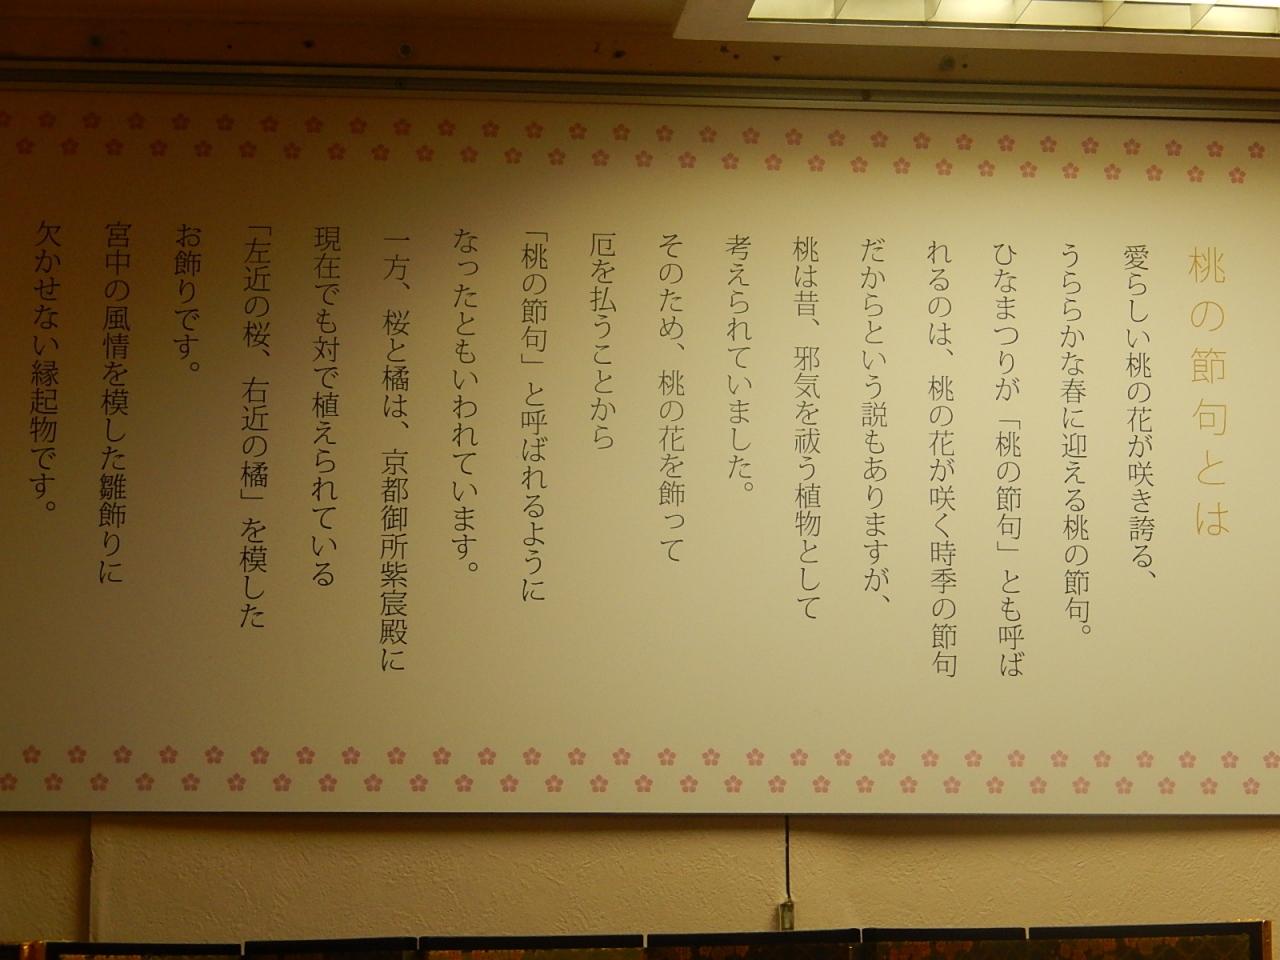 桃の節句とは
愛らしい桃の花が咲き誇る、
うららかな春に迎える桃の節句。
ひなまつりが「桃の節句」とも呼ば
れるのは、桃の花が咲く時季の節句
だからという説もありますが、
桃は昔、邪気を祓う植物として
考えられていました。
そのため、桃の花を飾って
厄を払うことから
「桃の節句」と呼ばれるように
なったともいわれています。
一方、桜と橘は、京都御所紫宸殿に
現在でも対で植えられている
「左近の桜、右近の橘」を模した
お飾りです。
宮中の風情を模した雛飾りに
欠かせない縁起物です。